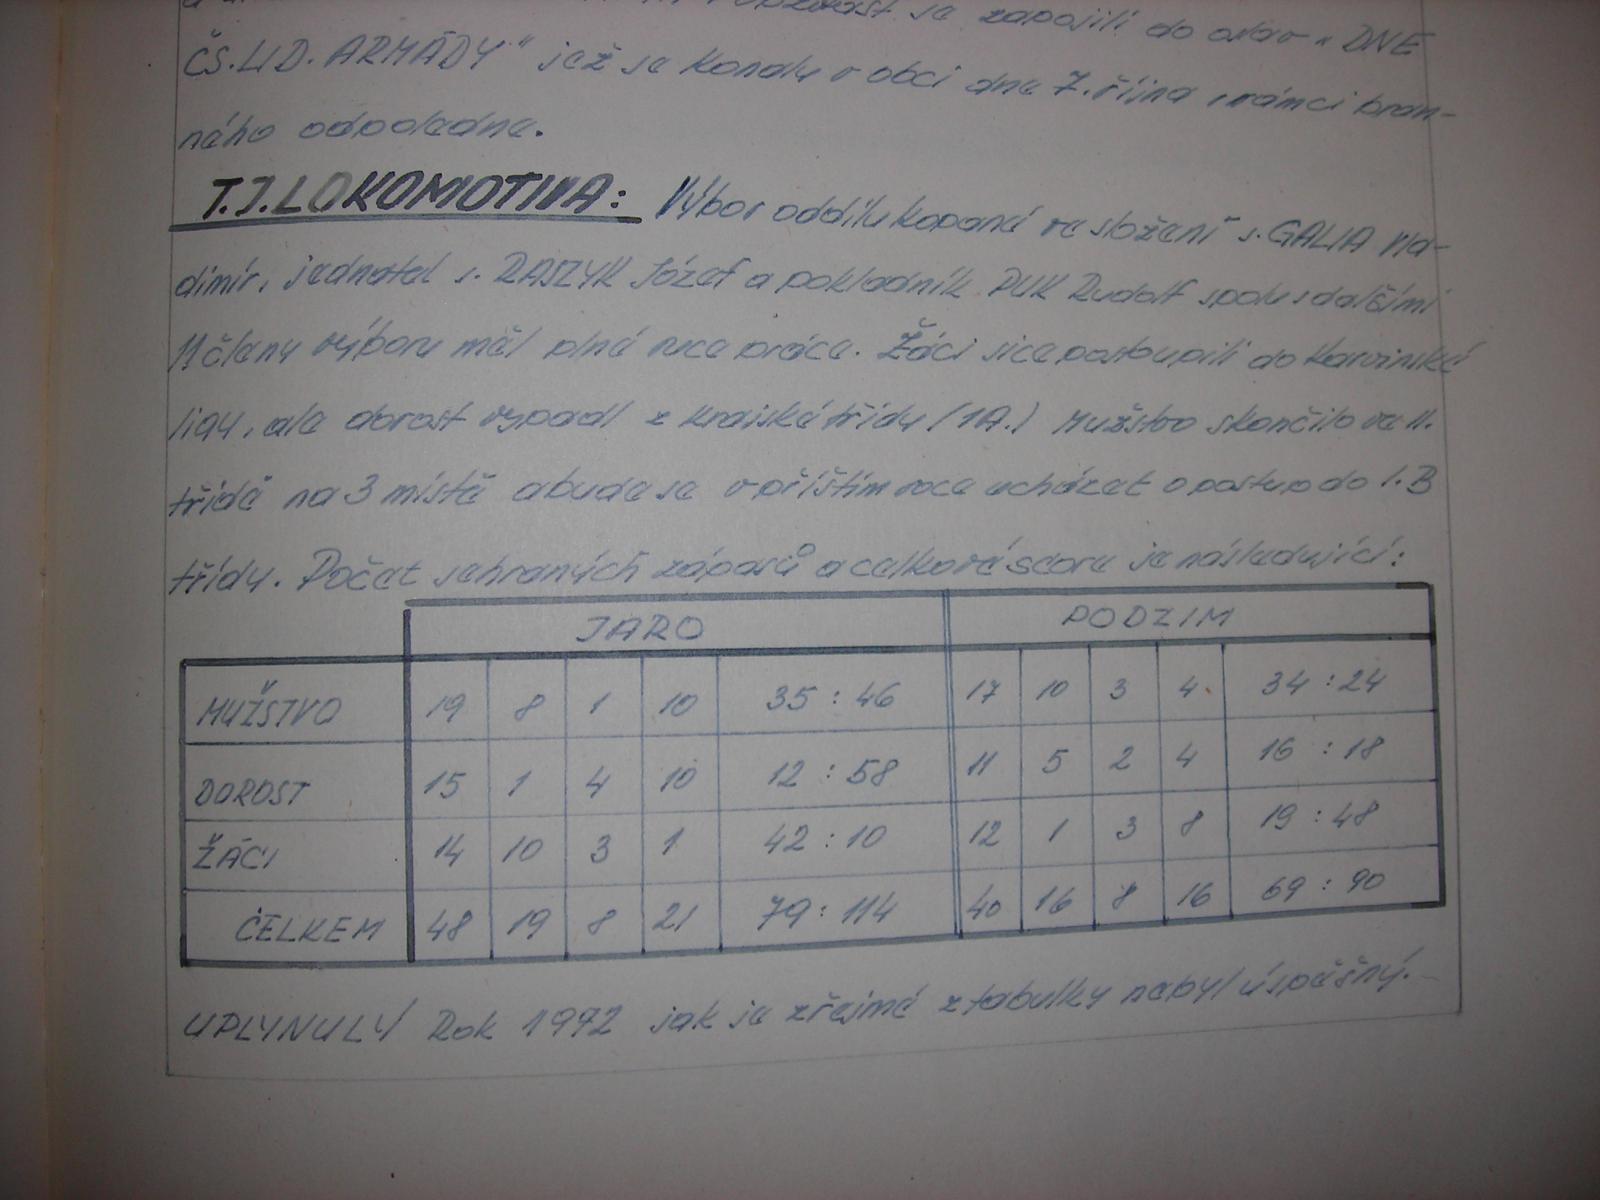 se zapojili do oslav „DNE
ČS.LID. ARMÁDY" jež se konaly v obci dne 7. října v rámci bran-
ného odpoledne.
T.J.LOKOMOTIVA: Výbor oddílu kopané ve složení s. GALIA Vla-
dimír, jednatel s. RASZYK Józef a pokladník PUK Rudolf spolu s dalšími
11 členy výboru měl plné ruce práce. Žáci sice postoupili do Karvinské
ligy, ale dorost vypadl z krajské třídy (1A.) Mužstvo skončilo ve II.
třídě na 3 místě a bude se v příštím roce ucházet o postup do I.B
třídy. Počet sehraných zápasů a celkové score je následující:
JARO PODZIM
MUŽSTVO 19 8 1 10 35 : 46 17 10 3 4 34 : 24
DOROST 15 1 4 10 12 : 58 11 5 2 4 16 : 18
ŽÁCI 14 10 3 1 42 : 10 12 1 3 8 19 : 48
CELKEM 48 19 8 21 79 : 114 40 16 8 16 69 : 90
UPLYNULÝ Rok 1972 jak je zřejmé z tabulky nebyl úspěšný.